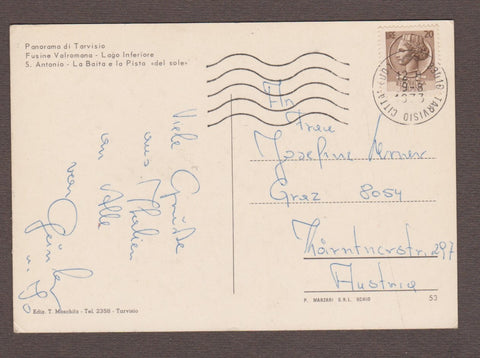 Panorama di Tarvisio
Fusine Valromana - Lago Inferiore
S. Antonio - La Baita e la Pista «del sole»
LIRE 20
TARVISIO CITTA
9-8
1973
Viele Grüße
aus Italien
an Alle
von Günter
An
Frau
Josefine
Graz 8054
Kärntnerstr. 297
Austria
Ediz. T. Moschitz - Tel. 2358 - Tarvisio
P. MARZARI S.R.L. SCHIO
53